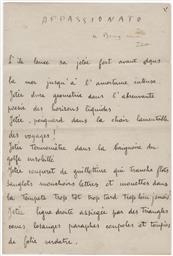 APPASSIONATO
S'il lance sa jetée fort avant dans
la mer jusqu'à l'amertume intense
Jetée dure géométrie dans l'
poésie des horizons liquides
Jetée, poignard dans la chair lamentable
des voyages !
Jetée Termomètre dans la baignoire du
golfe
Jetée couperet de guillotine qui tranche flots
sanglots mouchoirs lettres et mouettes dans
la Tempête Trop tôt trop tard Trop loin
Jetée ligne droite assiégée par des triangles
cones losanges paraphes coupoles et toupies
de folie verdatre.